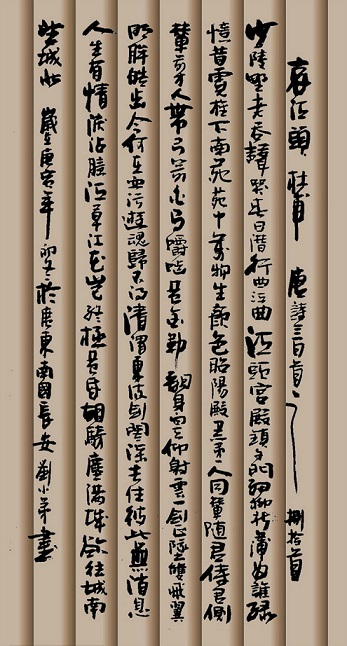 哀江頭 杜甫 唐詩三百首之 捌拾首
少陵野老吞聲哭春日潛行曲江曲江頭宮殿鎖千門細柳新蒲為誰綠
憶昔霓旌下南苑苑中萬物生顏色昭陽殿里第一人同輦隨君侍君側
輦前才人帶弓箭白馬嚼齧黃金勒翻身向天仰射雲一劍正墜雙飛翼
明眸皓齒今何在血污遊魂歸不得清渭東流劍閣深去住彼此無消息
人生有情淚沾臆江草江花豈終極黃昏胡騎塵滿城欲往城南
望城北 歲在庚寅年 於廣東南國長安 劉小弟書